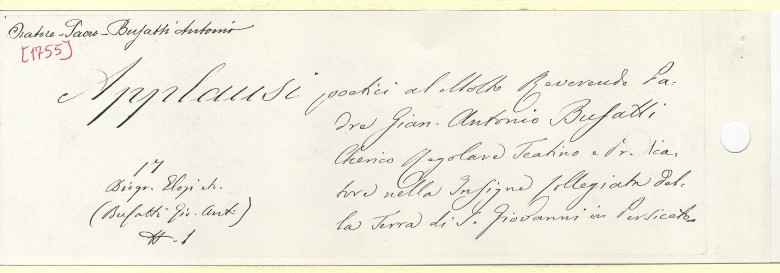 Oratore - Sacro - Bufatti Antonio
[1755]
Applausi poetici al Molto Reverendo Pa-
dre Gian-Antonio Bufatti
Cherico Regolare Teatino e Predica-
tore nella Insigne Collegiata del-
la Terra di S. Giovanni in Persiceto
17
Biogr. Elogi
(Bufatti Gio. Ant.)
1